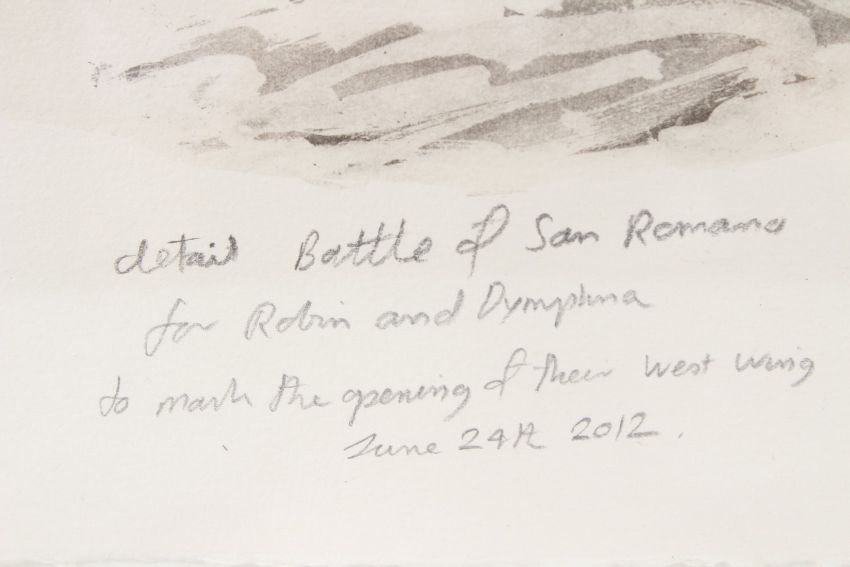 detail Battle of San Romano
for Robin and Dymphna
to mark the opening of their west wing
June 24th 2012.